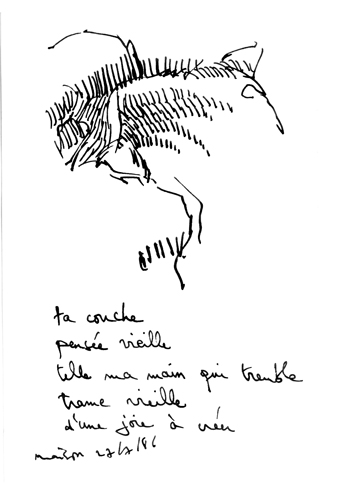 ta couche
pensée vieille
telle ma main qui tremble
trame vieille
d'une joie à créer
maison 27/7/86